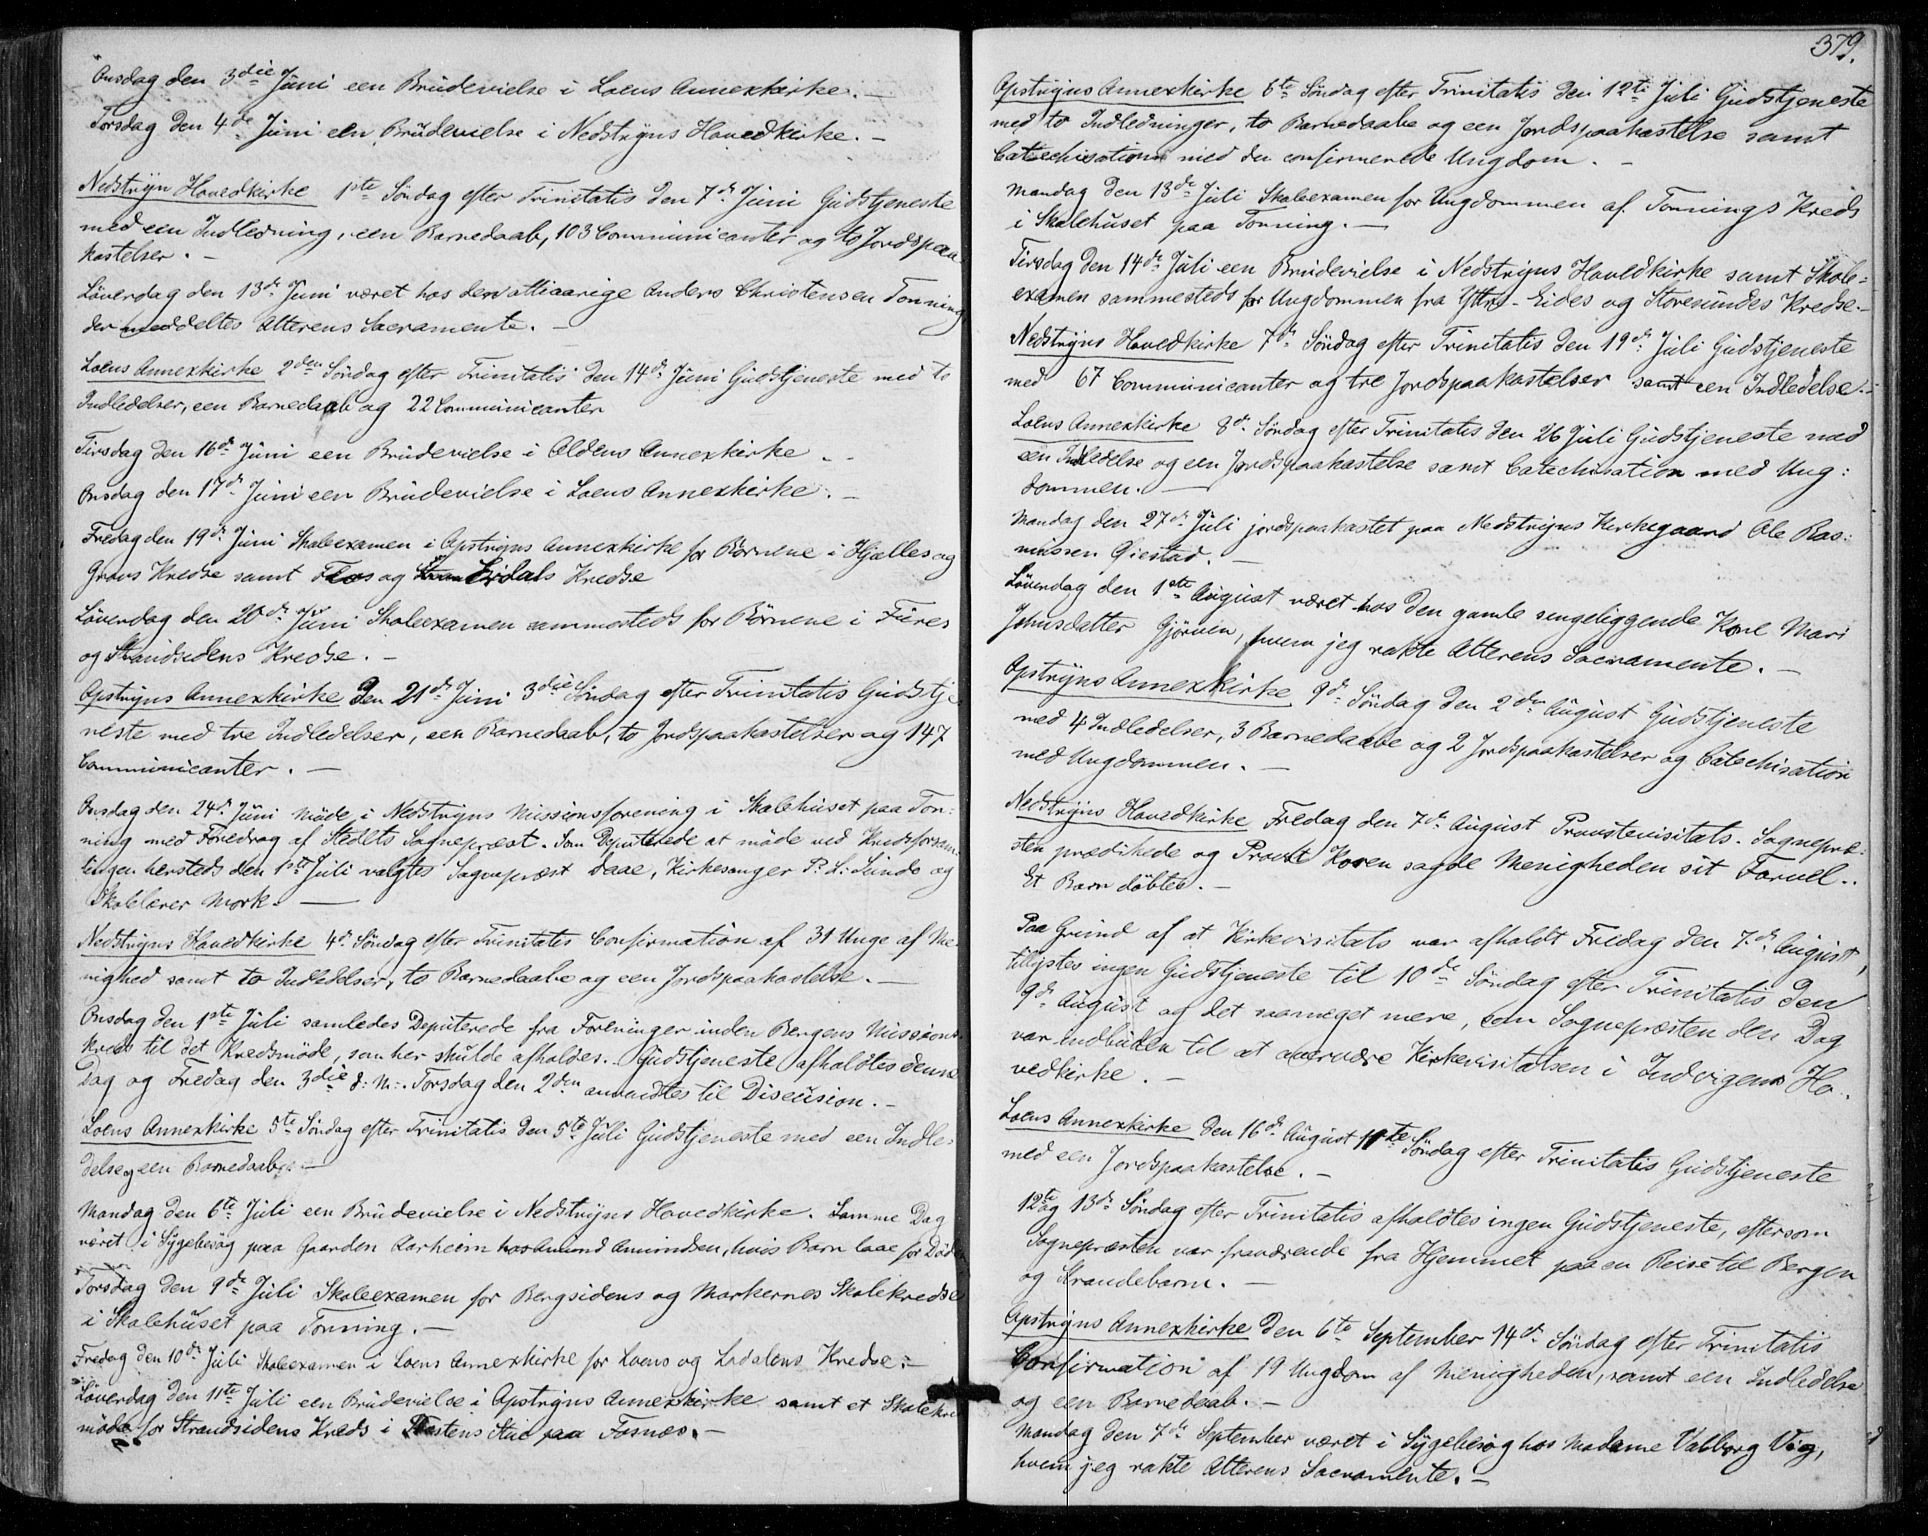 Onsdag den 3die Juni een Brudevielse i Loens Annexkirke. —
Torsdag den 4de Juni een Brudevielse i Nedstryns Hovedkirke. —
Nedstryn Hovedkirke 1ste Søndag efter Trinitatis den 7de Juni Gudstjeneste
med een Indledning, een Barnedaab, 103 Communicanter og to Jordspaa-
kastelser. —
Løverdag den 13de Juni været hos den ottiaarige Anders Christensen Tonning
der meddeltes Alterens Sacramente. —
Loens Annexkirke 2den Søndag efter Trinitatis den 14de Juni Gudstjeneste med to
Indledelser, een Barnedaab og 22 Communicanter
Tirsdag den 16de Juni een Brudevielse i Oldens Annexkirke. —
Onsdag den 17de Juni een Brudevielse i Loens Annexkirke. —
Fredag den 19de Juni Skoleexamen i Opstryns Annexkirke for Børnene i Hjelles og
Gravs Kredse samt Flos og Erdals Kredse
Løverdag den 20de Juni Skoleexamen sammesteds for Børnene i Fures
og Strandsedens Kredse. —
Opstryns Annexkirke Den 21de Juni 3die Søndag efter Trinitatis Gudstje-
neste med tre Indledelser, een Barnedaab, to Jordspaakastelser og 147
Communicanter. —
Onsdag den 24de Juni Møde i Nedstryns Missionsforening i Skolehuset paa Ton-
ning med Foredrag af Stedets Sognepræst. Som Deputerede at møde ved Kredsforsam-
lingen hersteds den 1ste Juli valgtes Sognepræst Daae, Kirkesanger P. L. Sunde og
Skolelærer Mork. —
Nedstryns Hovedkirke 4de Søndag efter Trinitatis Confirmation af 31 Unge af Me-
nighed samt to Indledelser, to Barnedaabe og een Jordspaakastelse. —
Onsdag den 1ste Juli samledes Deputerede fra Foreninger inden Bergens Missions-
kreds til det Kredsmøde, som her skulde afholdes. Gudstjeneste afholdtes denne
Dag og Fredag den 3die d: M:. Torsdag den 2den anvendtes til Discusion. —
Loens Annexkirke 5te Søndag efter Trinitatis den 5te Juli Gudstjeneste med een Indle-
delse og een Barnedaab. —
Mandag den 6te Juli een Brudevielse i Nedstryns Hovedkirke. Samme Dag
været i Sygebesøg paa Gaarden Aarheim hos Amund Amundsen, hvis Barn laae for Døde
Torsdag den 9de Juli Skoleexamen for Bergsidens og Markernes Skolekredse
i Skolehuset paa Tonning. —
Fredag den 10de Juli Skoleexamen i Loens Annexkirke for Loens og Lodalens Kredse. —
Løverdag den 11te Juli een Brudevielse i Opstryns Annexkirke samt et Skolekre-
møde for Strandsidens Kreds i Stue paa Fosnes. —
379.
Opstryns Annexkirke 6te Søndag efter Trinitatis den 12te Juli Gudstjeneste
med to Indledninger, to Barnedaabe og een Jordspaakastelse samt
Catechisation med den confirmerede Ungdom. —
Mandag den 13de Juli Skoleexamen for Ungdommen af Tonnings Kreds
i Skolehuset paa Tonning. —
Tirsdag den 14de Juli een Brudevielse i Nedstryns Hovedkirke samt Skole-
examen sammesteds for Ungdommen fra Ytre-Eides og Storesundes Kredse. —
Nedstryns Hovedkirke 7de Søndag efter Trinitatis den 19de Juli Gudstjeneste
med 67 Communicanter og tre Jordspaakastelser samt een Indledelse. —
Loens Annexkirke 8de Søndag efter Trinitatis den 26 Juli Gudstjeneste med
een Indledelse og een Jordspaakastelse samt Catechisation med Ung:
dommen. —
Mandag den 27de Juli jordspaakastet paa Nedstryns Kirkegaard Ole Ras:
mussen Giestad. —
Løverdag den 1ste August været hos den gamle sengeliggende Kone Mari
Johnsdatter Gjørven, hvem jeg rakte Alterens Sacramente. —
Opstryns Annexkirke 9de Søndag den 2den August Gudstjeneste
med 4 Indledelser, 3 Barnedaabe og 2 Jordspaakastelser og Catechisation
med Ungdommen. —
Nedstryns Hovedkirke Fredag den 7de August Provstevisitats. Sognepræ-
sten prædikede og Provst Koren sagde Menigheden sit Farvel.
Et Barn døbtes. —
Paa Grund af at Kirkevisitats var afholdt Fredag den 7de August,
tillystes ingen Gudstjeneste til 10de Søndag efter Trinitatis den
9de August og det saameget mere, som Sognepræsten den Dag
var indbuden til at overvære Kirkevisitatsen i Indvigens Ho-
vedkirke. —
Loens Annexkirke den 16de August 11te Søndag efter Trinitatis Gudstjeneste
med een Jordspaakastelse. —
12te og 13de Søndag efter Trinitatis afholdtes ingen Gudstjeneste, eftersom
Sognepræsten var fraværende fra Hjemmet paa en Reise til Bergen
og Strandebarm. —
Opstryns Annexkirke den 6te September 14de Søndag efter Trinitatis
Confirmation af 19 Ungdom af Menigheden, samt een Indledelse
og een Barnedaab. —
Mandag den 7de September været i Sygebesøg hos Madame Valborg Vig,
hvem jeg rakte Alterens Sacramente. —